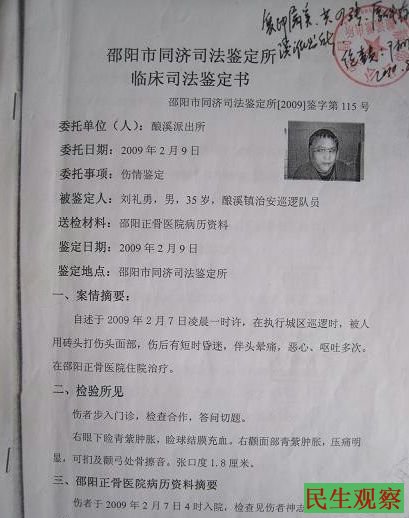 邵阳市同济司法鉴定所
临床司法鉴定书
邵阳市同济司法鉴定所[2009]鉴字第 115 号
委托单位（人）：酿溪派出所
委托日期：2009 年 2 月 9 日
委托事项：伤情鉴定
被鉴定人：刘礼勇，男，35 岁，酿溪镇治安巡逻队员
送检材料：邵阳正骨医院病历资料
鉴定日期：2009 年 2 月 9 日
鉴定地点：邵阳市同济司法鉴定所
一、案情摘要：
自述于 2009 年 2 月 7 日凌晨一时许，在执行城区巡逻时，被人
用砖头打伤头面部，伤后有短时昏迷，伴头晕痛，恶心、呕吐多次。
在邵阳正骨医院住院治疗。
二、检验所见
伤者步入门诊，检查合作，答问切题。
右眼下睑青紫肿胀，睑球结膜充血。右颧面部青紫肿胀，压痛明
显，可扪及颧弓处骨擦音。张口度 1.8 厘米。
三、邵阳正骨医院病历资料摘要
伤者于 2009 年 2 月 7 日 4 时入院，检查见伤者神志
民生观察